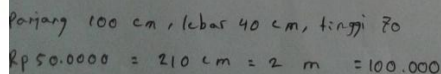 Panjang 100 cm, lebar 40 cm, tinggi 70
Rp 50.0000 = 210 cm = 2 m = 100.000